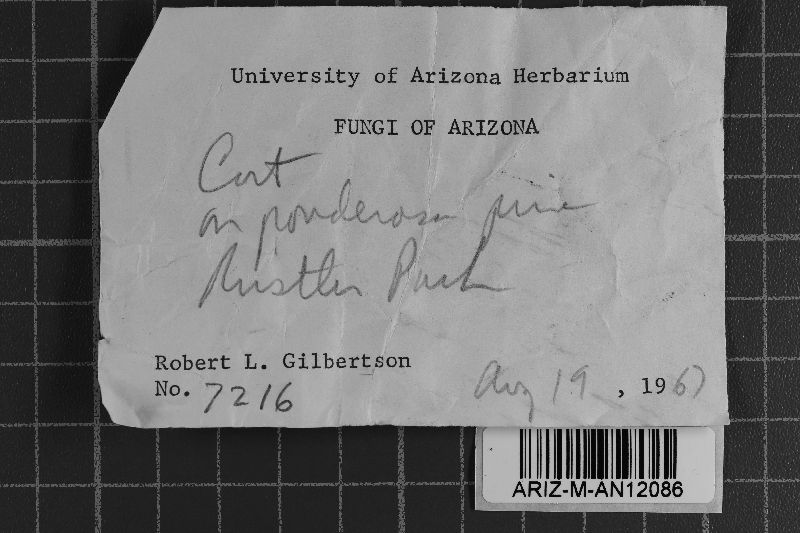 University of Arizona Herbarium
FUNGI OF ARIZONA
Cort
on ponderosa pine
Rustler Park
Robert L. Gilbertson
No. 7216
Aug 19, 1967
ARIZ-M-AN12086